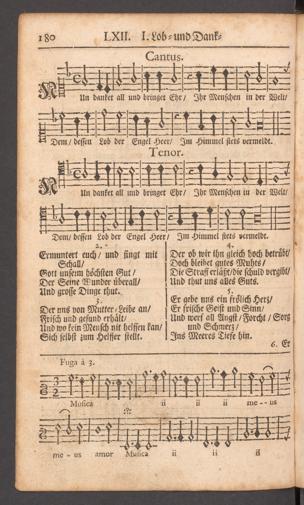 180 LXII. I. Lob- und Dank-
Cantus.
Un danket all und bringet Ehr/ Jhr Menschen in der Welt/
Dem/ dessen Lob der Engel Heer/ Jm Himmel stets vermeldt.
Tenor.
Un danket all und bringet Ehr/ Jhr Menschen in der Welt/
Dem/ dessen Lob der Engel Heer/ Jm Himmel stets vermeldt.
2.
Ermuntert euch/ und singt mit
Schall/
Gott unserm höchsten Gut/
Der Seine Wunder überall/
Und grosse Dinge thut.
3.
Der uns von Mutter-Leibe an/
Frisch und gesund erhält/
Und wo kein Mensch nit helffen kan/
Sich selbst zum Helffer stellt.
4.
Der ob wir ihn gleich hoch betrübt/
Doch bleibet gutes Muhts/
Die Straff erläst/die schuld vergibt/
Und thut uns alles Guts.
5.
Er gebe uns ein frölich Herz/
Er frische Geist und Sinn/
Und werf all Angst/ Forcht/ Sorg
und Schmerz/
Jns Meeres Tiefe hin.
6. Er
Fuga à 3.
Musica ii ii ii me--us
:S:
me-us amor Musica ii ii ii